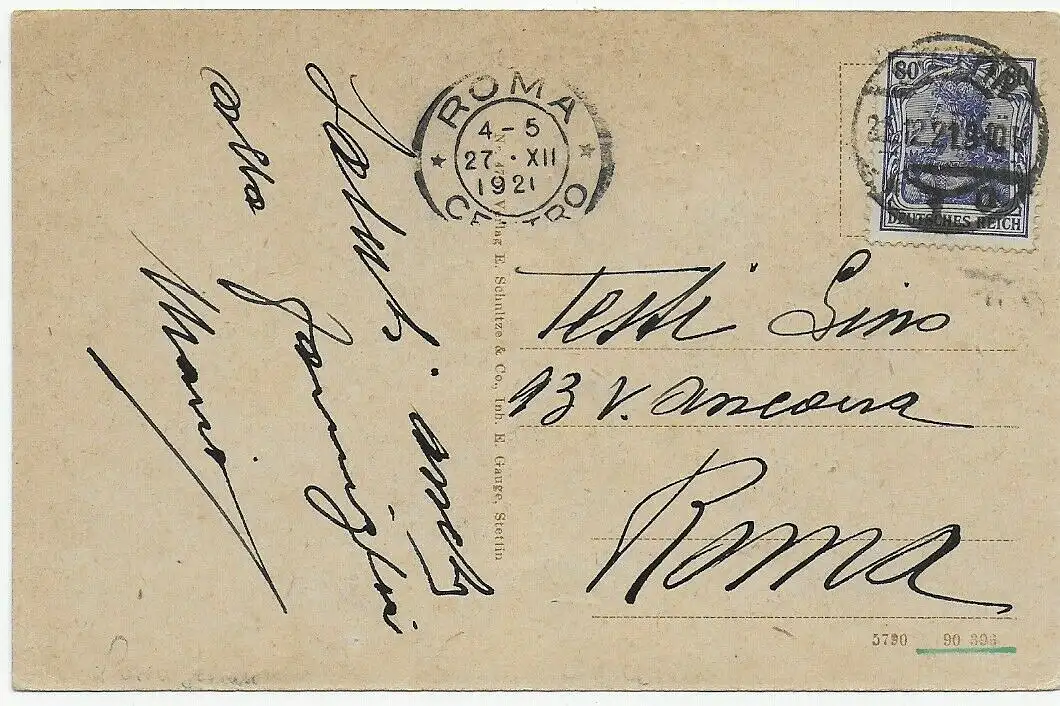 Saluti. anche
alla famiglia
Mario
ROMA
4-5
27·XII
1921
CENTRO
Verlag E. Schultze & Co., Inh. E. Gauge, Stettin
80 80
12.21.9-10
DEUTSCHES REICH
Testi Lino
13 V. Ancona
Roma
5790 90 396